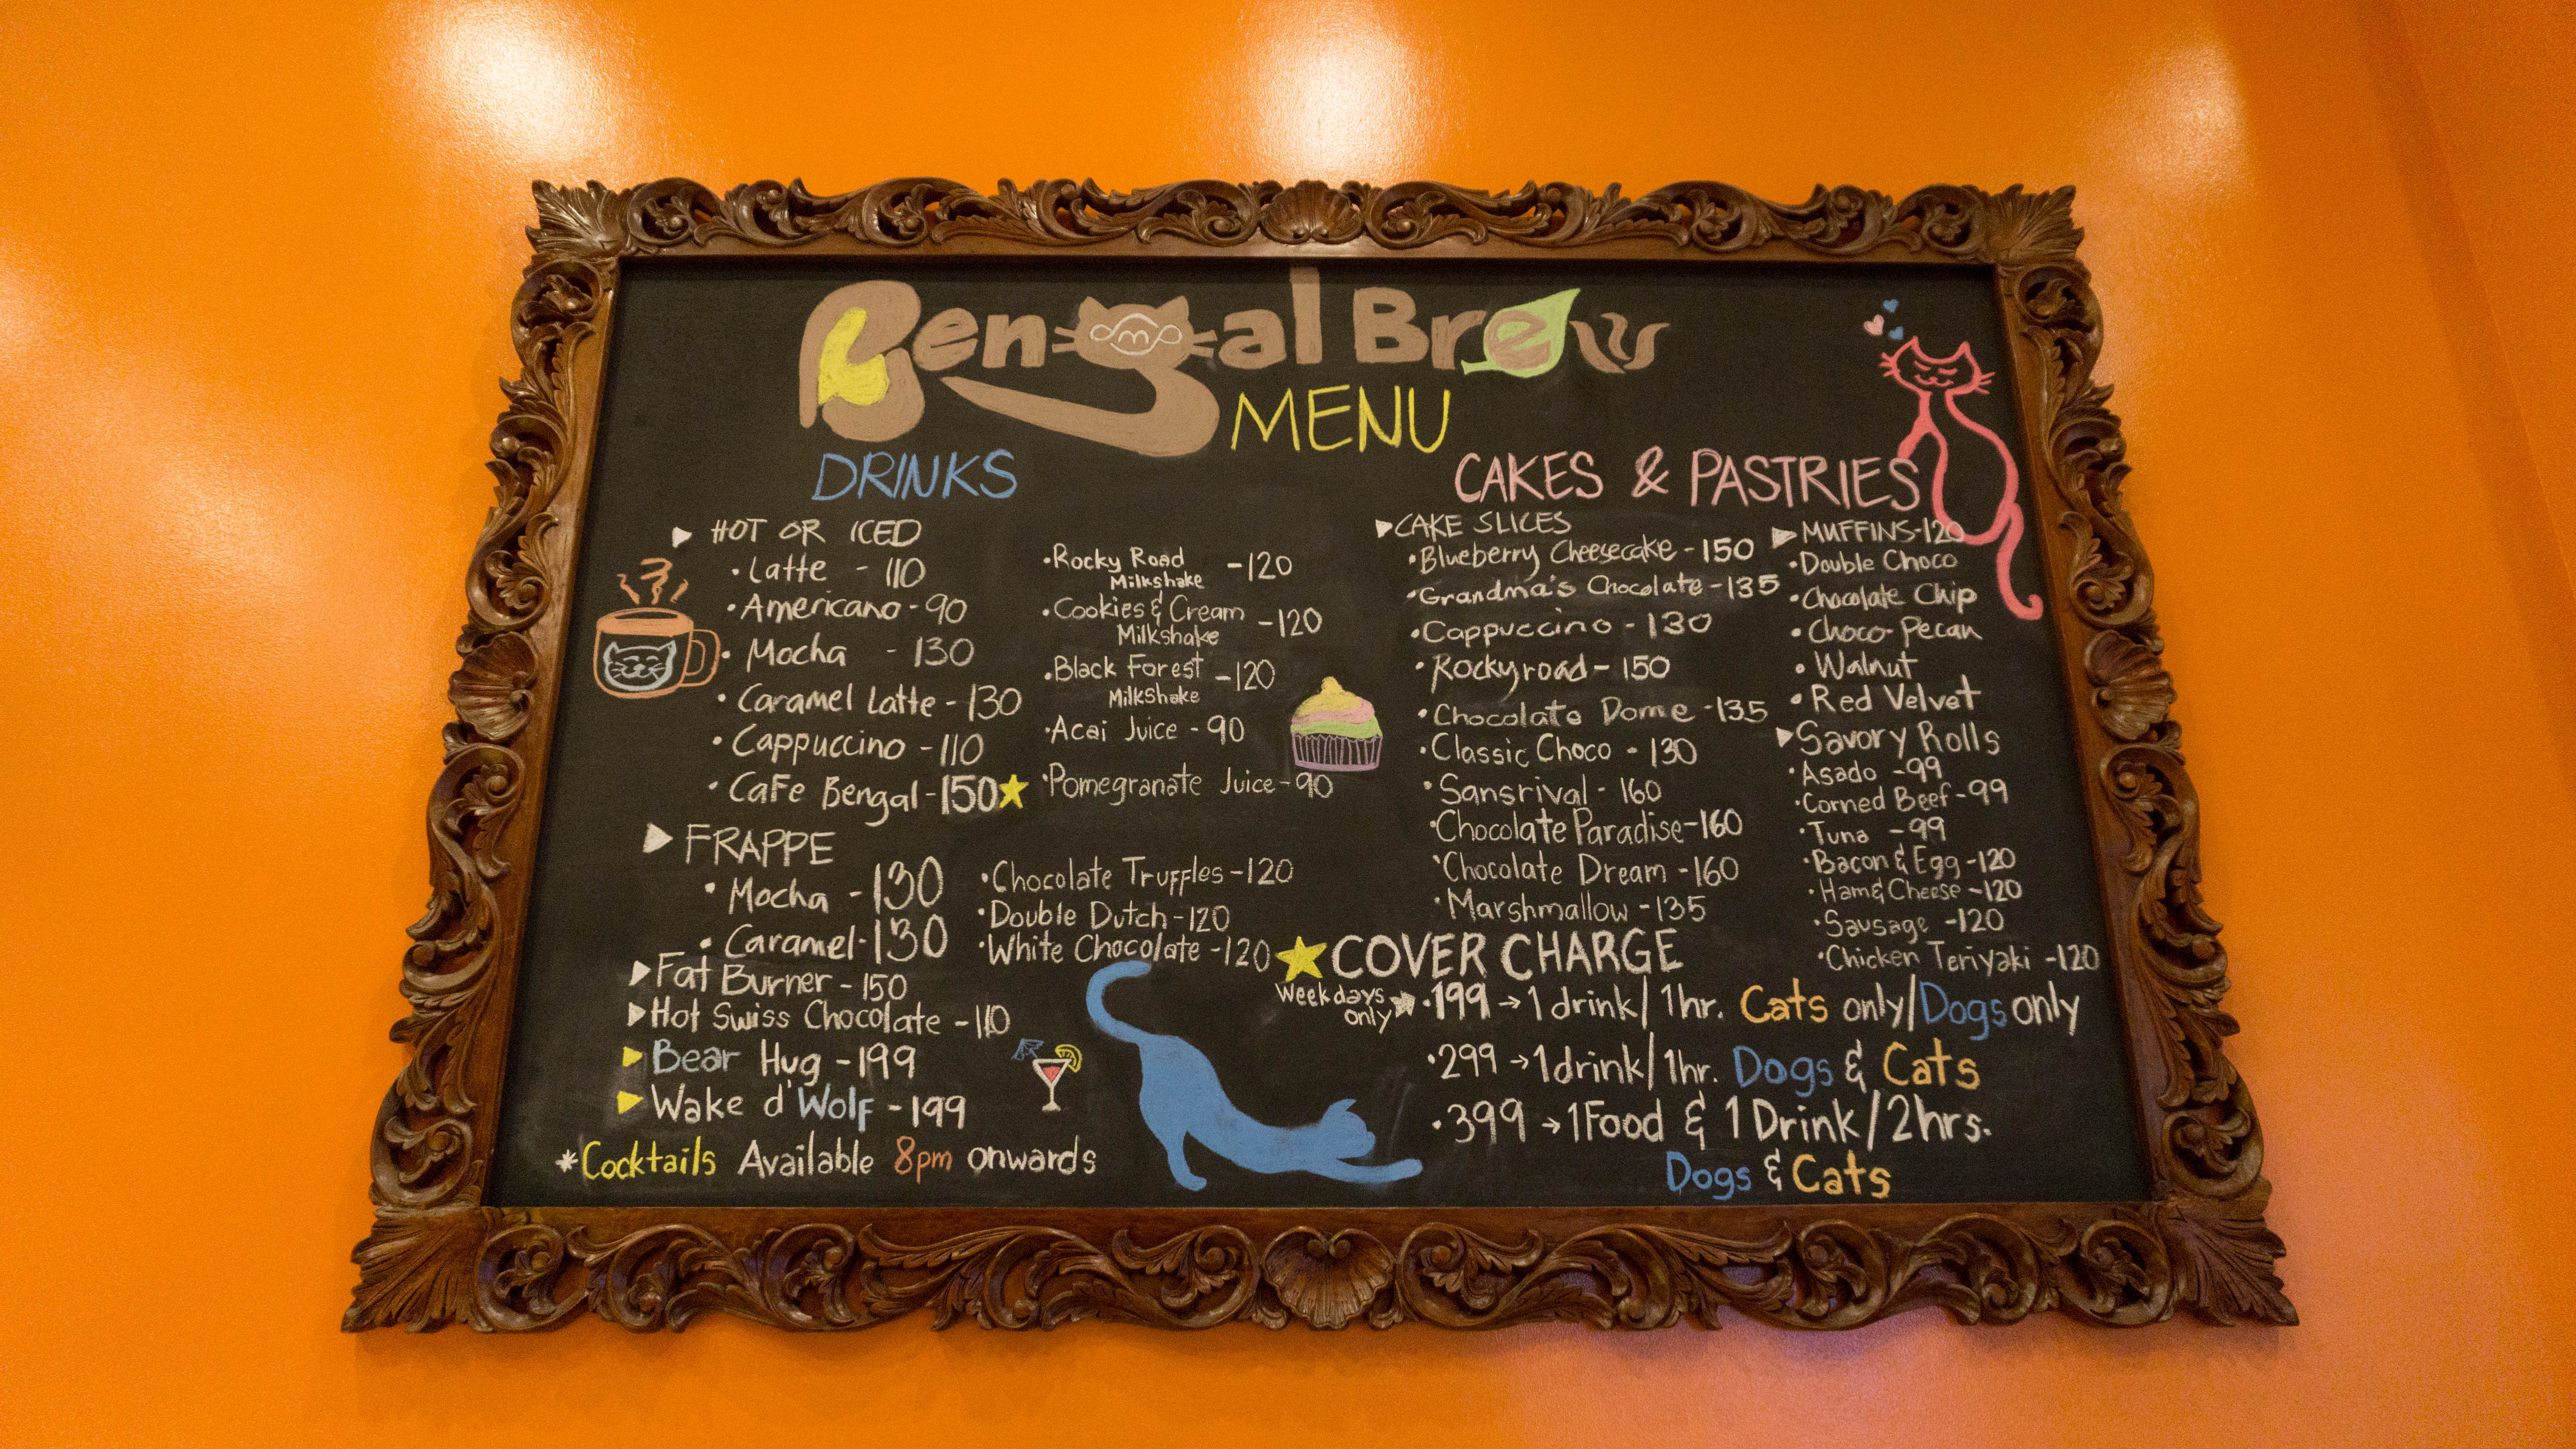 Bengal Brew
MENU
DRINKS
▶ HOT OR ICED
• Latte - 110
• Americano - 90
• Mocha - 130
• Caramel Latte - 130
• Cappuccino - 110
• CaFe Bengal - 150 ★
• Rocky Road - 120
Milkshake
• Cookies & Cream - 120
Milkshake
• Black Forest - 120
Milkshake
• Acai Juice - 90
• Pomegranate Juice - 90
▶ FRAPPE
• Mocha - 130
• Caramel - 130
• Chocolate Truffles - 120
• Double Dutch - 120
• White Chocolate - 120
▶ Fat Burner - 150
▶ Hot Swiss Chocolate - 110
▶ Bear Hug - 199
▶ Wake d' Wolf - 199
* Cocktails Available 8pm onwards
CAKES & PASTRIES
▶ CAKE SLICES
• Blueberry Cheesecake - 150
• Grandma's Chocolate - 135
• Cappuccino - 130
• Rockyroad - 150
• Chocolate Dome - 135
• Classic Choco - 130
• Sansrival - 160
• Chocolate Paradise - 160
• Chocolate Dream - 160
• Marshmallow - 135
▶ MUFFINS - 120
• Double Choco
• Chocolate Chip
• Choco-Pecan
• Walnut
• Red Velvet
▶ Savory Rolls
• Asado - 99
• Corned Beef - 99
• Tuna - 99
• Bacon & Egg - 120
• Ham & Cheese - 120
• Sausage - 120
• Chicken Teriyaki - 120
★ COVER CHARGE
Weekdays only → • 199 → 1 drink / 1hr. Cats only / Dogs only
• 299 → 1 drink / 1hr. Dogs & Cats
• 399 → 1 Food & 1 Drink / 2hrs.
Dogs & Cats